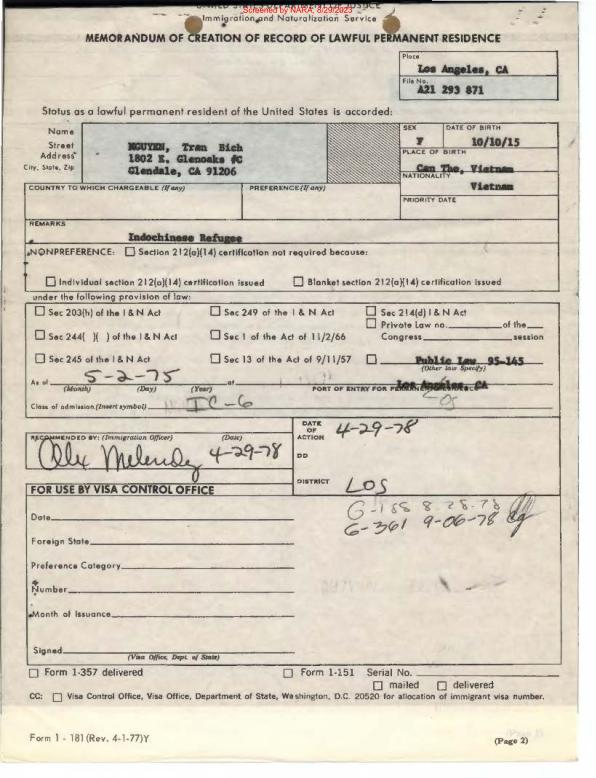 Screened by NARA, 8/29/2023
Immigration and Naturalization Service
MEMORANDUM OF CREATION OF RECORD OF LAWFUL PERMANENT RESIDENCE
Place
Los Angeles, CA
File No.
A21 293 871
Status as a lawful permanent resident of the United States is accorded:
Name NGUYEN, Tran Bich
Street Address 1802 E. Glenoaks #C
City, State, Zip Glendale, CA 91206
SEX F
DATE OF BIRTH 10/10/15
PLACE OF BIRTH
Can Tho, Vietnam
NATIONALITY
Vietnam
COUNTRY TO WHICH CHARGEABLE (If any)
PREFERENCE (If any)
PRIORITY DATE
REMARKS
Indochinese Refugee
NONPREFERENCE: ☐ Section 212(a)(14) certification not required because:
☐ Individual section 212(a)(14) certification issued ☐ Blanket section 212(a)(14) certification issued
under the following provision of law:
☐ Sec 203(h) of the I & N Act ☐ Sec 249 of the I & N Act ☐ Sec 214(d) I & N Act
☐ Private Law no. of the
☐ Sec 244( )( ) of the I & N Act ☐ Sec 1 of the Act of 11/2/66 Congress, session
☐ Sec 245 of the I & N Act ☐ Sec 13 of the Act of 9/11/57 ☐ Public Law 95-145
(Other law Specify)
As of 5-2-75 at Los Angeles, CA
(Month) (Day) (Year) PORT OF ENTRY FOR
Class of admission (Insert symbol) IC-6 LOS
RECOMMENDED BY: (Immigration Officer) (Date)
4-29-78
DATE OF ACTION 4-29-78
DD
DISTRICT LOS
G-188 8-28-78
G-361 9-06-78
FOR USE BY VISA CONTROL OFFICE
Date
Foreign State
Preference Category
Number
Month of Issuance
Signed
(Visa Office, Dept. of State)
☐ Form 1-357 delivered ☐ Form 1-151 Serial No.
☐ mailed ☐ delivered
CC: ☐ Visa Control Office, Visa Office, Department of State, Washington, D.C. 20520 for allocation of immigrant visa number.
Form 1 - 181 (Rev. 4-1-77)Y
(Page 2)